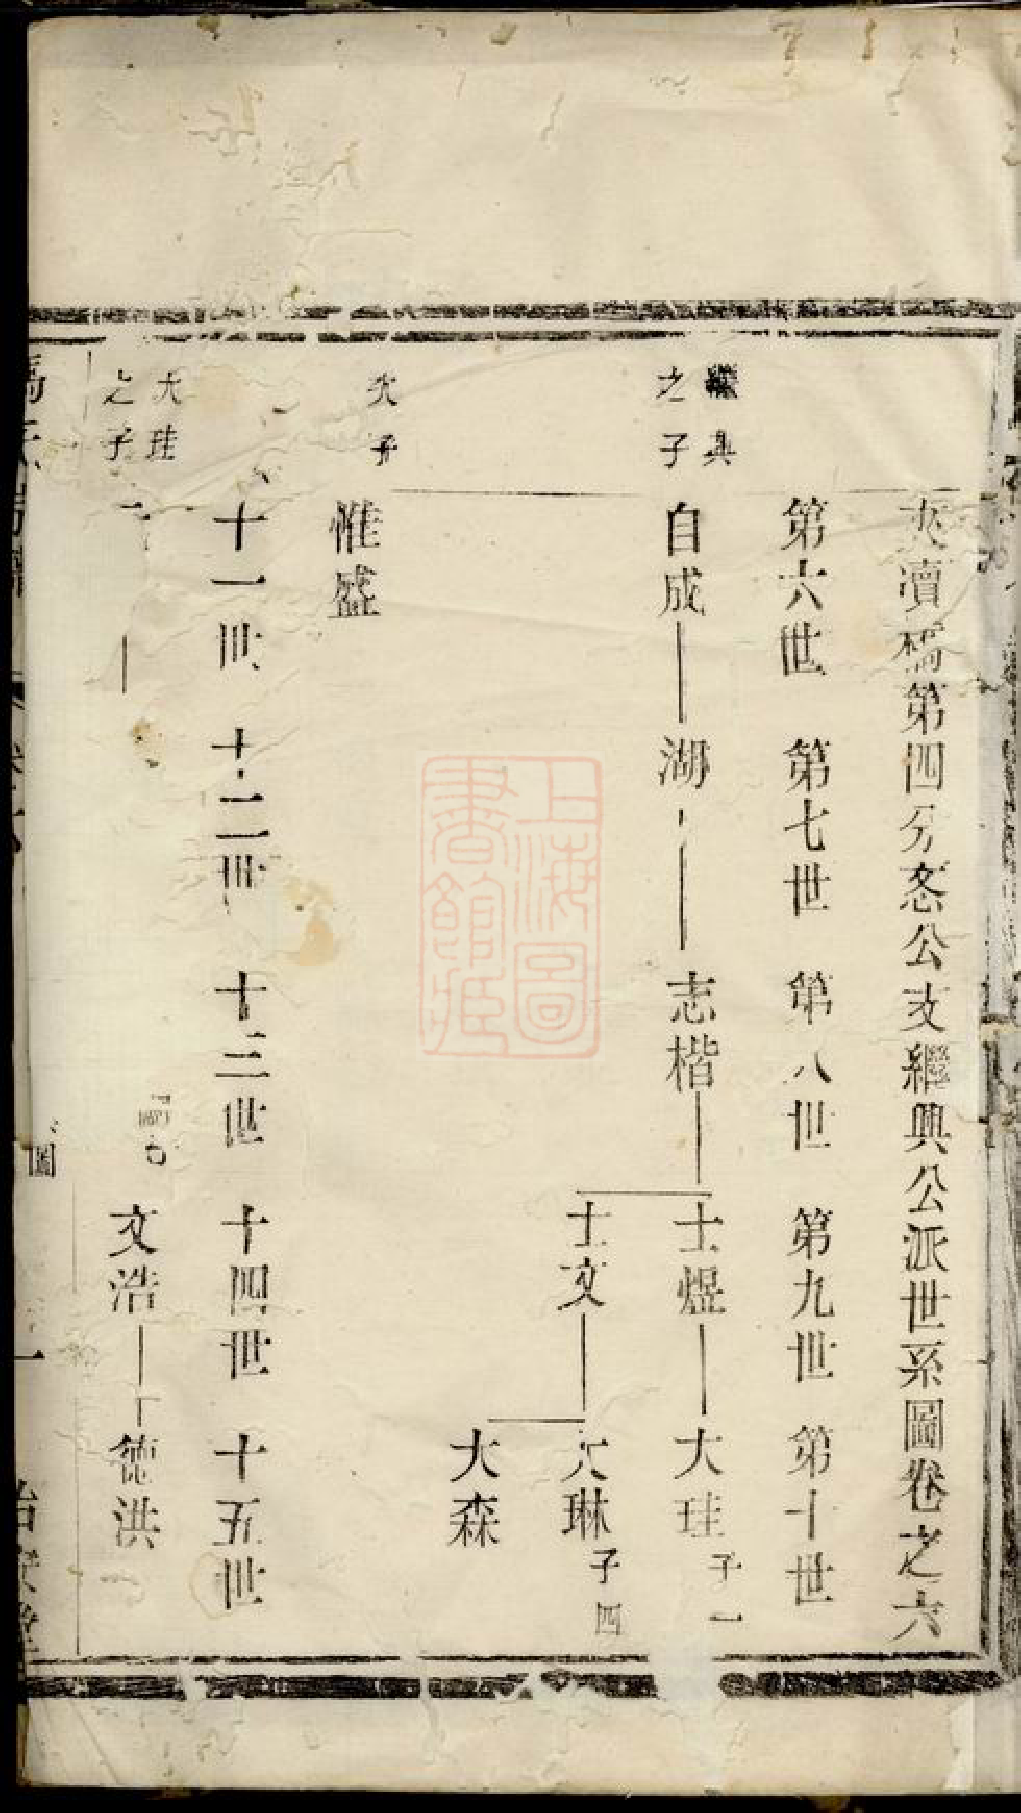 夾瀆橋第四分忞公支繼興公派世系圖卷之六
第六世 第七世 第八世 第九世 第十世
繼興
之子
自成 湖 志楷 士煜 大珪 子一
士文 大琳 子四
大森
次子
惟盛
十一世 十二世 十三世 十四世 十五世
大珪
之子
文浩 德洪
圖
一
上海圖
書館藏